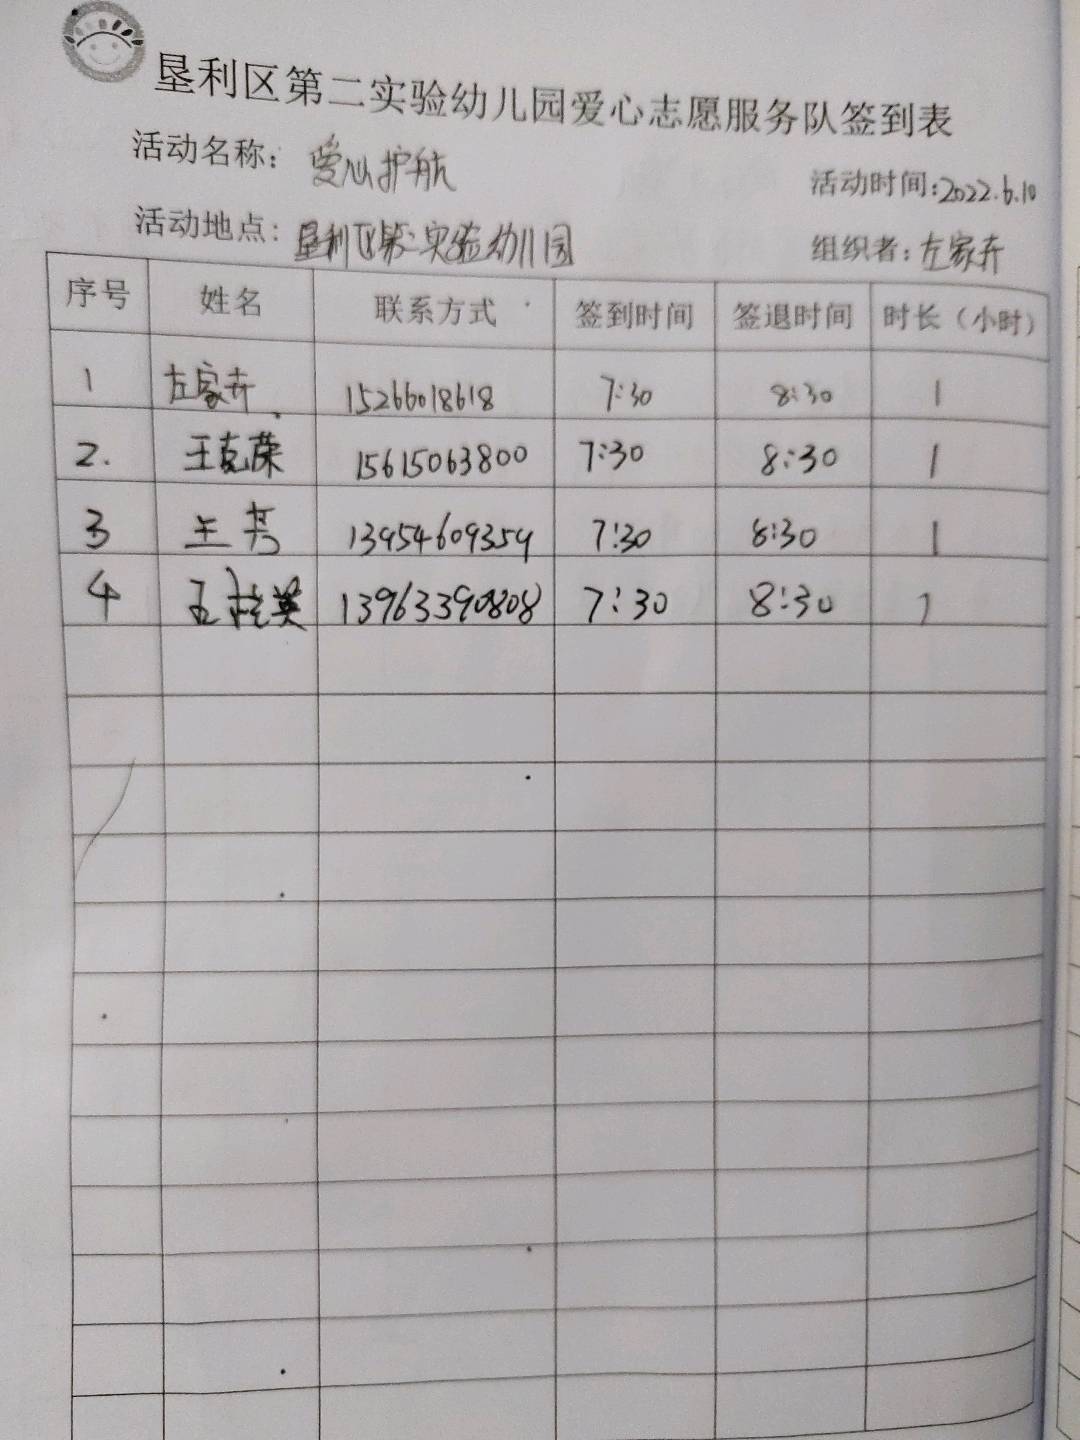 垦利区第二实验幼儿园爱心志愿服务队签到表
活动名称: 爱心护航
活动时间:2022.6.10
活动地点: 垦利区第二实验幼儿园
组织者:左家卉
序号 姓名 联系方式 签到时间 签退时间 时长（小时）
1 左家卉 15266018618 7:30 8:30 1
2. 王克荣 15615063800 7:30 8:30 1
3 王芳 13954609359 7:30 8:30 1
4 王桂英 13963390808 7:30 8:30 1